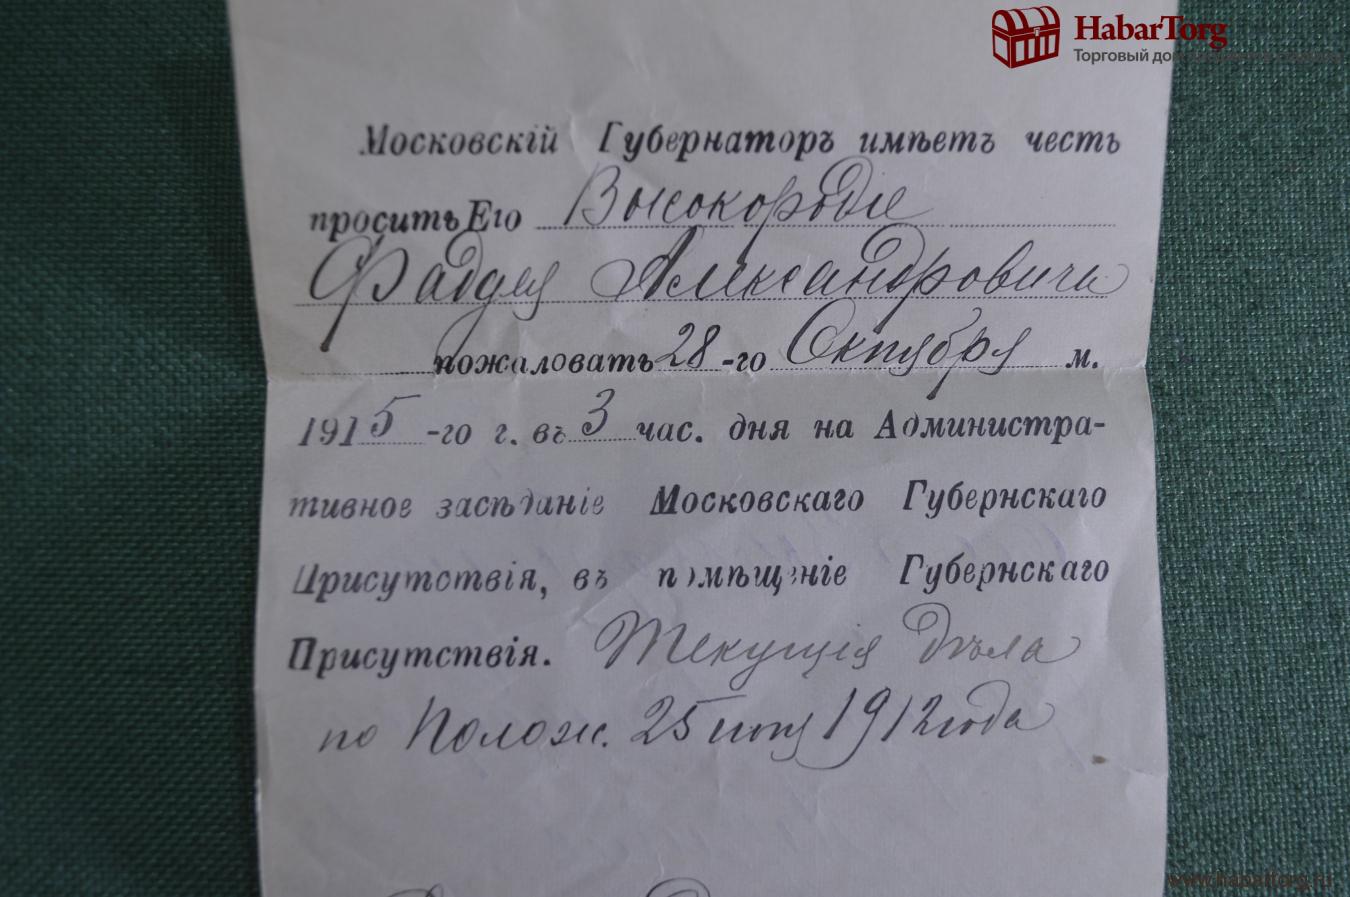 HabarTorg
Торговый дом
Московскій Губернаторъ имѣетъ честь
проситъ Его Высокородіе
Фаддея Александровича
пожаловать 28-го Октября м.
1915-го г. въ 3 час. дня на Администра-
тивное засѣданіе Московскаго Губернскаго
Присутствія, въ помѣщеніе Губернскаго
Присутствія. Текущія дѣла
по Полож. 25 іюня 1912 года
www.habartorg.ru